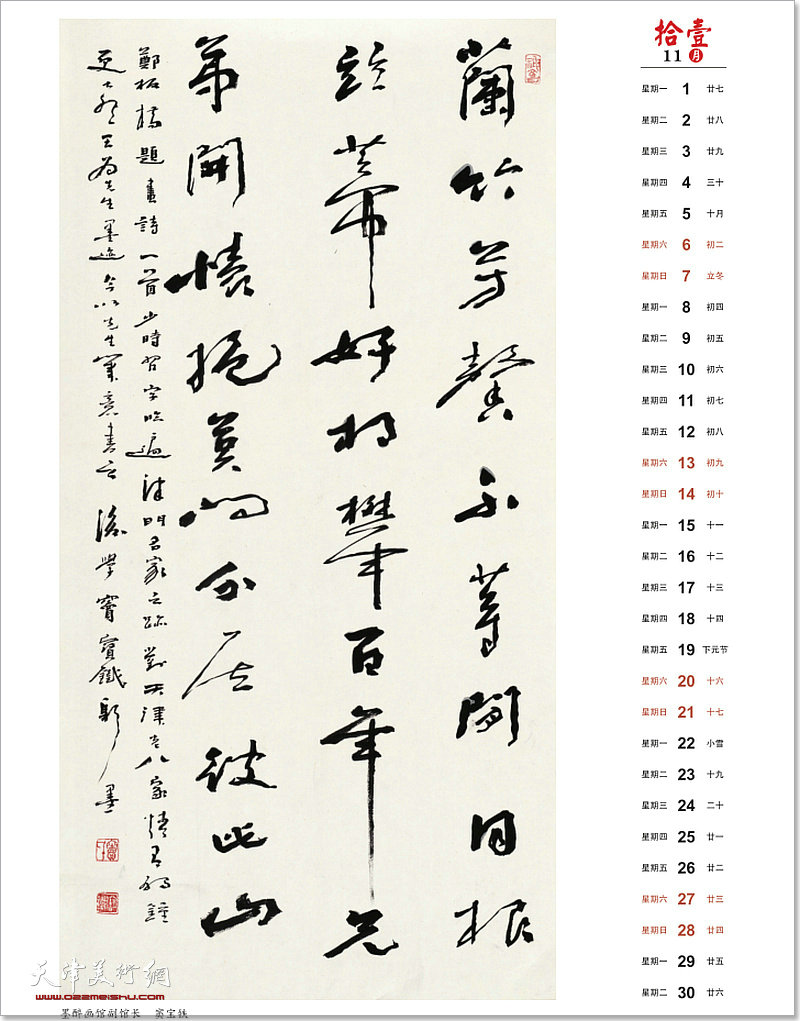 蘭竹芳馨不等閒同根
並蒂好相攀百年兄
弟開懷抱莫謂分居彼此山
鄭板橋題畫詩一首少時習字臨遍津門名家之跡對天津老八家情有獨鍾
先生墨迹今以先生筆意書之後學竇寶鐵敬墨
拾壹
11 月
星期一 1 廿七
星期二 2 廿八
星期三 3 廿九
星期四 4 三十
星期五 5 十月
星期六 6 初二
星期日 7 立冬
星期一 8 初四
星期二 9 初五
星期三 10 初六
星期四 11 初七
星期五 12 初八
星期六 13 初九
星期日 14 初十
星期一 15 十一
星期二 16 十二
星期三 17 十三
星期四 18 十四
星期五 19 下元节
星期六 20 十六
星期日 21 十七
星期一 22 小雪
星期二 23 十九
星期三 24 二十
星期四 25 廿一
星期五 26 廿二
星期六 27 廿三
星期日 28 廿四
星期一 29 廿五
星期二 30 廿六
天津美術網
www.022meishu.com
墨醉画馆副馆长 窦宝铁